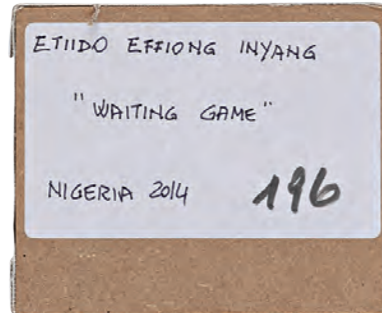 ETIIDO EFFIONG INYANG
"WAITING GAME"
NIGERIA 2014 196